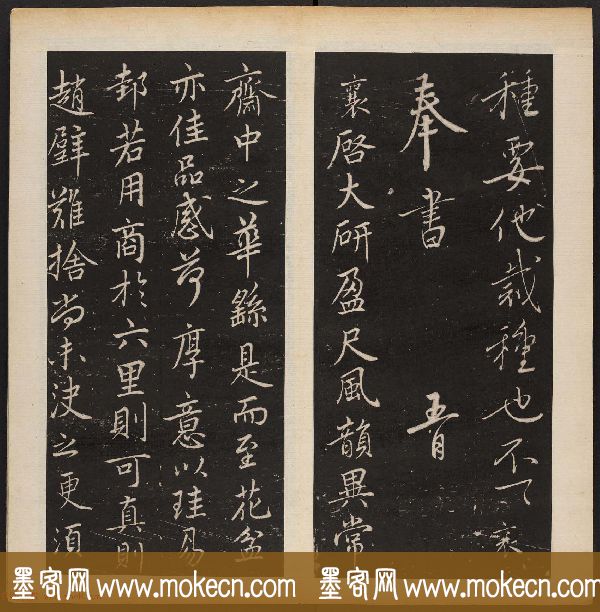 種要他栽種也不一 襄
奉書 五月
襄啓大研盈尺風韻異常
齋中之華繇是而至花盆
亦佳品感荷厚意以珪易
邽若用商於六里則可真則
趙璧難捨尚未決之更須
墨客网 www.mokecn.com 墨客网 www.mokecn.com